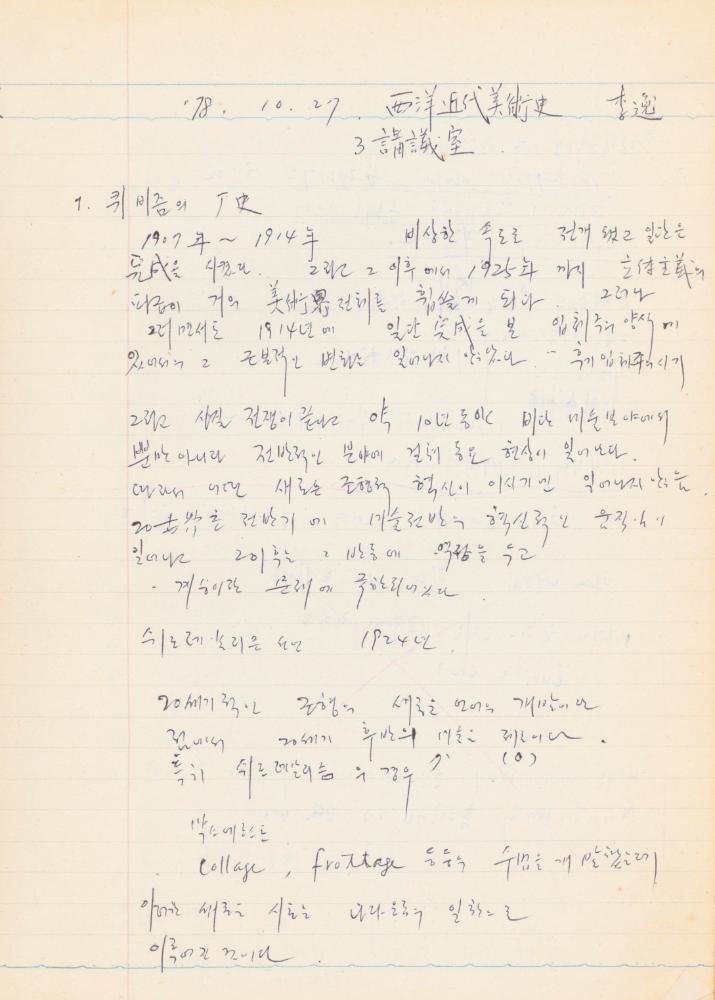 '78. 10. 27. 西洋近代美術史 李逸
3 講議室
1. 퀴비즘의 丁史
1907年 ~ 1914年 비상한 속도로 전개 됐고 일단은
完成을 시켰다. 그리고 그 이후에서 1925年 까지 立体主義의
파급이 거의 美術界 전체를 휩쓸게 되다. 그러나
그러면서도 1914년에 일단 完成을 본 입체주의 양식에
있어서의 그 근본적인 변화는 일어나지 않았다 - 후기입체주의시기
그리고 사실 전쟁이 끝나고 약 10년 동안 비단 미술분야에서
뿐만 아니라 전반적인 분야에 걸쳐 동요 현상이 일어난다.
따라서 어떤 새로운 조형적 혁신이 이시기엔 일어나지 않음.
20世界초 전반기에 미술전반의 혁신적인 움직임이
일어나고 그이후는 그 반동에 역점을 두고
계승이란 문제에 국한되어있다.
쉬르레알리즘 선언 1924년.
20세기적인 조형의 새로운 언어의 개발이란
점에서 20세기 후반의 미술은 제로이다.
특히 쉬르레알리슴의 경우 (0)
막스에른스트
collage, frottage 등등의 수법을 개발했는데
이러한 새로운 시도는 일환으로
이루어진 것이다.